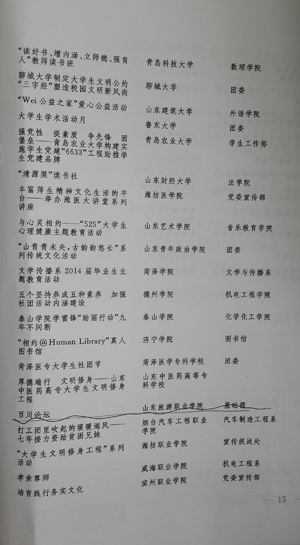 “读好书、增内涵、立师德、强育 青岛科技大学 数理学院
人”教师读书班
聊城大学制定大学生文明公约 聊城大学 团委
“三字经”塑造校园文明新风尚
“Wei 公益之家”爱心公益活动 山东建筑大学 外语学院
大学生学术活动月 鲁东大学 团委
强党性 提素质 争先锋 固 青岛农业大学 学生工作部
堡垒——青岛农业大学构建实
施学生党建“6633”工程助推学
生党建品牌
“清源渠”读书社 山东财经大学 法学院
丰富师生精神文化生活的平 潍坊医学院 党委宣传部
台——举办潍医大讲堂系列
讲座
与心灵相约——“525”大学生 山东艺术学院 音乐教育学院
心理健康主题教育活动
“山青青未央,古韵韵悠长”系 山东青年政治学院 团委
列传统文化活动
文学传播系 2014 届毕业生主 菏泽学院 文学与传播系
题教育活动
五个坚持养成五种素养 加强 德州学院 机电工程学院
社团活动内涵建设
泰山学院学雷锋“助丽行动”九 泰山学院 化学化工学院
年不间断
“相约@Human Library”真人 济宁学院 图书馆
图书馆
菏泽医专大学生社团节 菏泽医学专科学校 团委
厚德埔行 文明修身——山东 山东中医药高等专
中医药高专大学生文明修身 科学校
工程
百川论坛 山东旅游职业学院 基础部
打工团里吹起的暖暖海风—— 烟台汽车工程职业 汽车制造工程系
七年接力资助贫困兄妹 学院
“大学生文明修身工程”系列 潍坊职业学院 宣传统战处
活动
孝亲尊师 威海职业学院 机电工程系
培育践行务实文化 滨州职业学院 党委宣传部
— 15